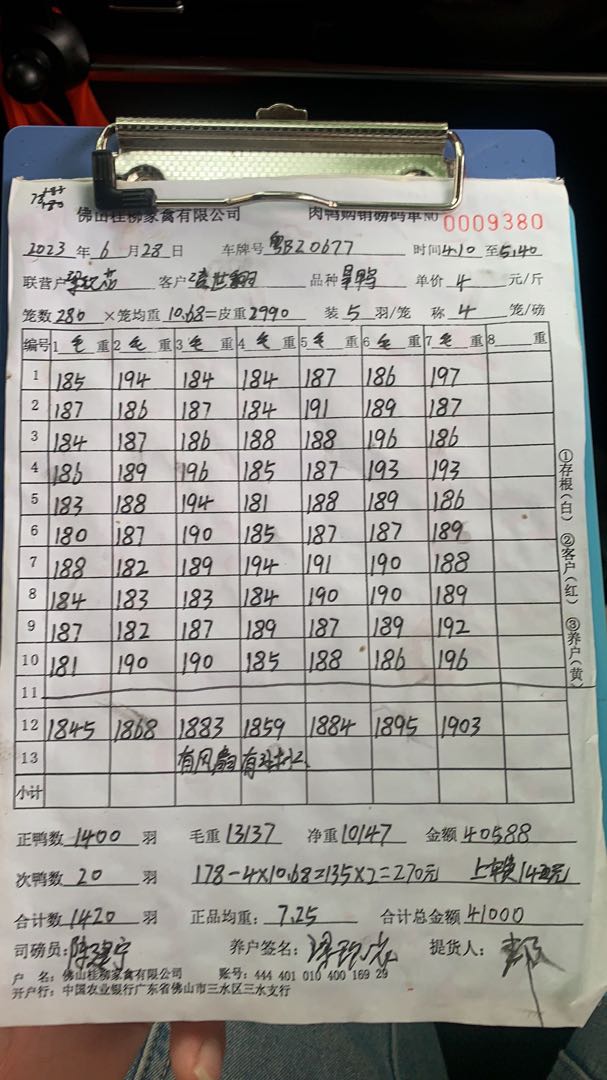 佛山桂柳家禽有限公司 肉鸭购销磅码单№ 0009380
2023 年 6 月 28 日 车牌号 粤BZ0677 时间 4.10 至 5.40
联营户 客户 品种 旱鸭 单价 4 元/斤
笼数 280 ×笼均重 10.68=皮重 2990 装 5 羽/笼 称 4 笼/磅
编号 1 毛 重 2 毛 重 3 毛 重 4 毛 重 5 毛 重 6 毛 重 7 毛 重 8 重
1 185 194 184 184 187 186 197
2 187 186 187 184 191 189 187
3 184 187 186 188 188 196 186
4 186 189 196 185 187 193 193
5 183 188 194 181 188 189 186
6 180 187 190 185 187 187 189
7 188 182 189 194 191 190 188
8 184 183 183 184 190 190 189
9 187 182 187 189 187 189 192
10 181 190 190 185 188 186 196
11
12 1845 1868 1883 1859 1884 1895 1903
13 有风扇有
小计
①存根(白) ②客户(红) ③养户(黄)
正鸭数 1400 羽 毛重 13137 净重 10147 金额 40588
次鸭数 20 羽 178-4×10.68=135×2=270元
合计数 1420 羽 正品均重: 7.25 合计总金额 41000
司磅员: 养户签名: 提货人:
户 名: 佛山桂柳家禽有限公司 账号: 444 401 010 400 169 29
开户行: 中国农业银行广东省佛山市三水区三水支行